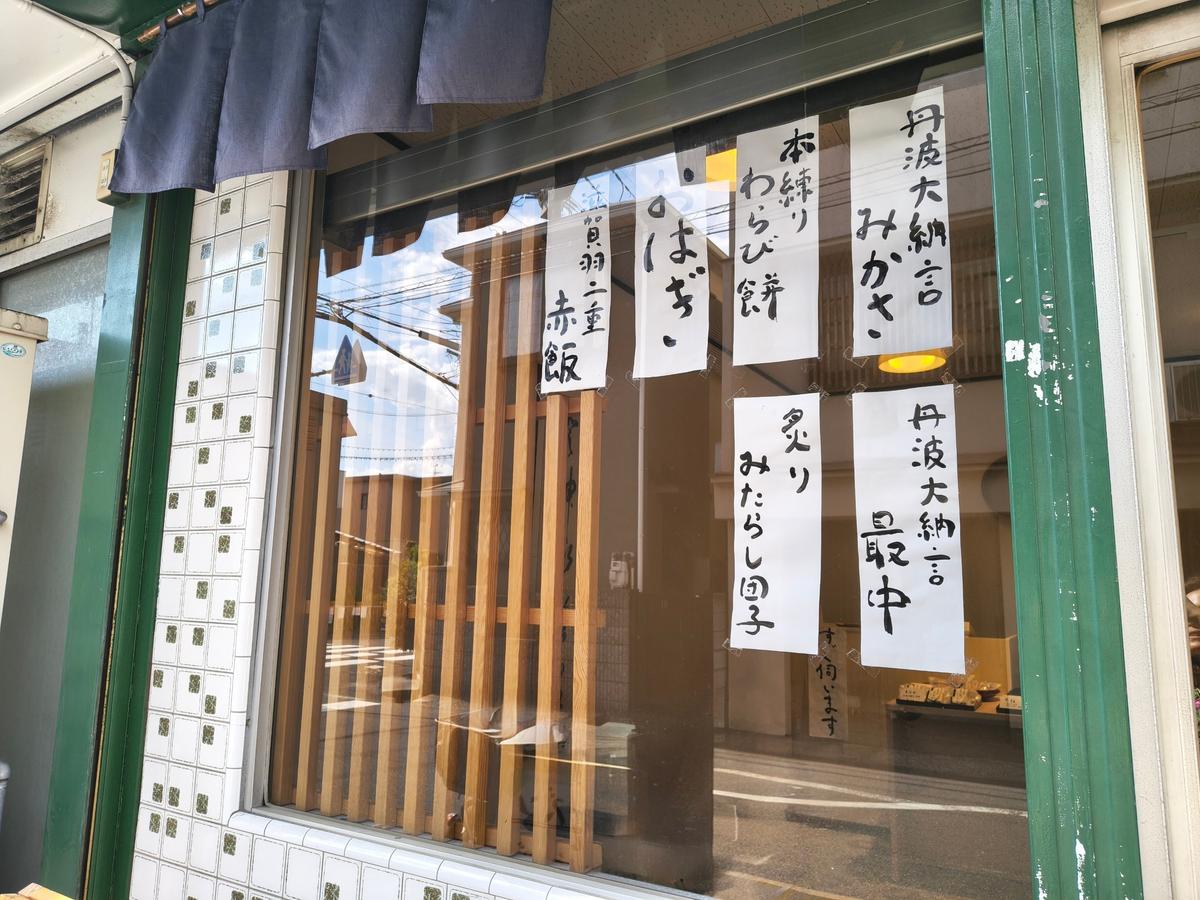 丹波大納言
みかさ
本練り
わらび餅
おはぎ
滋賀羽二重
赤飯
丹波大納言
最中
炙り
みたらし団子
すぐ伺います